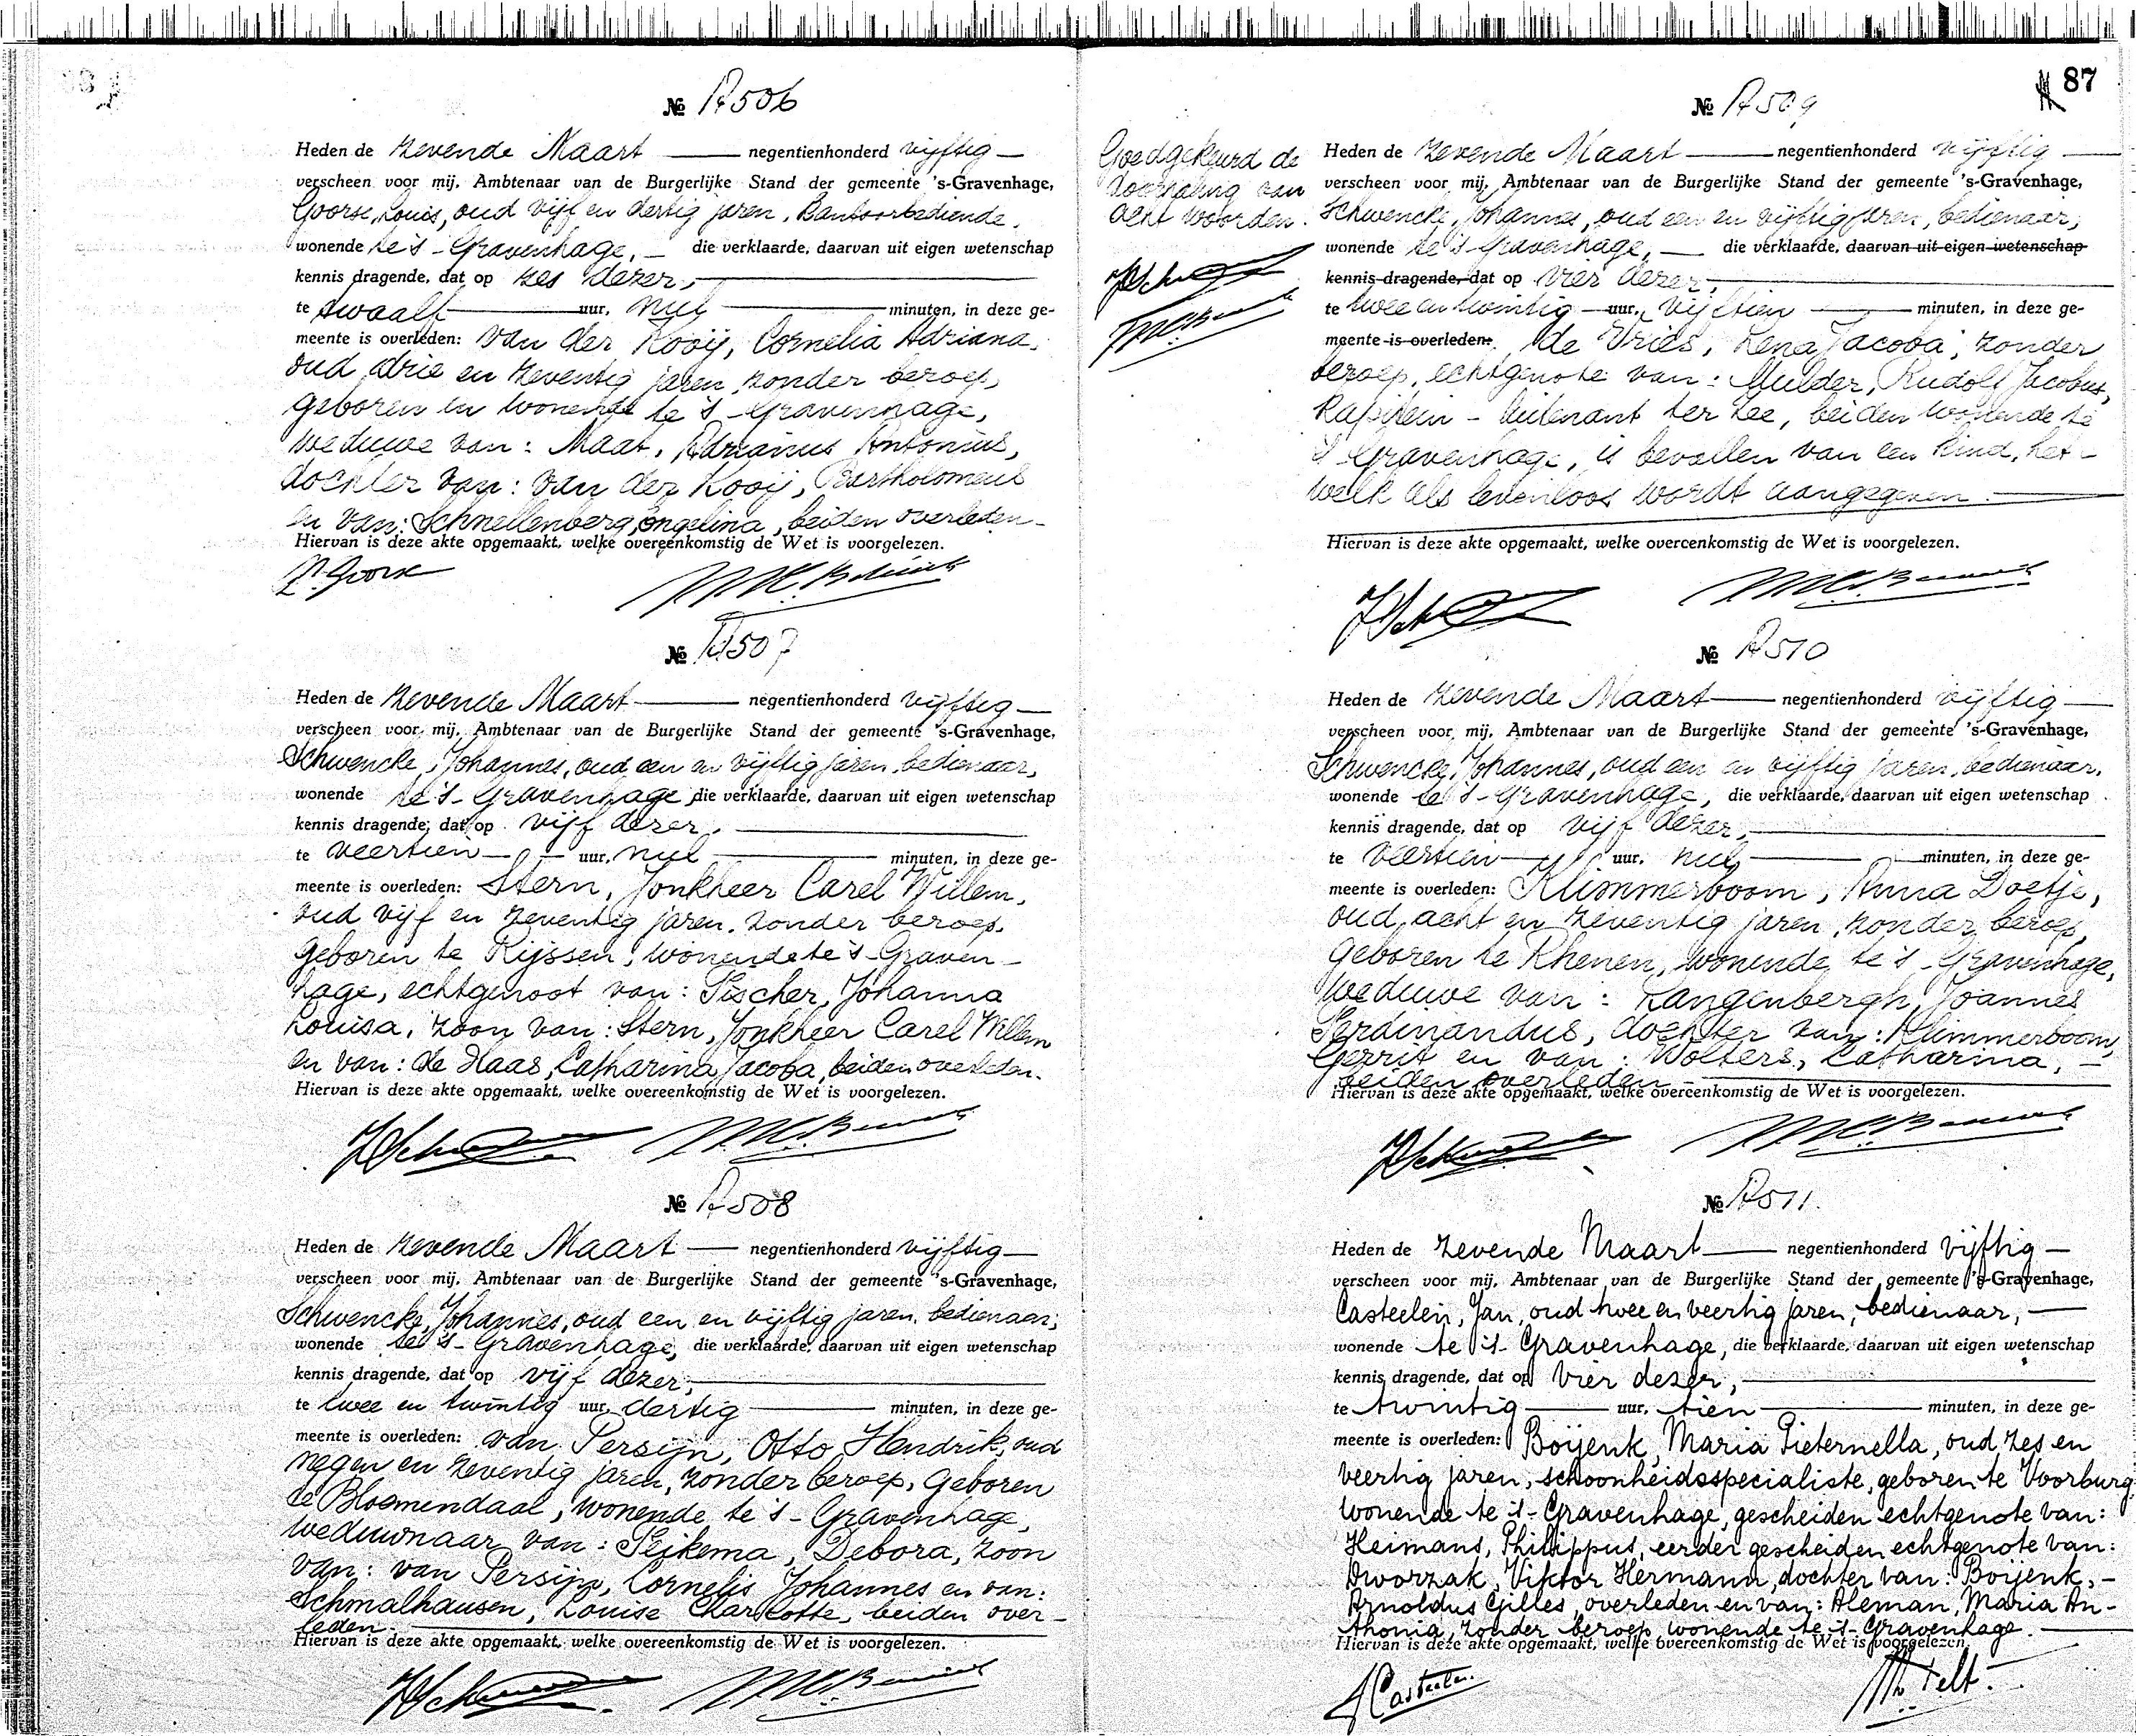 № A506
Heden de zevende Maart negentienhonderd vijftig
verscheen voor mij, Ambtenaar van de Burgerlijke Stand der gemeente 's-Gravenhage,
Goorse, Louis, oud vijf en dertig jaren, Kantoorbediende,
wonende te 's-Gravenhage, die verklaarde, daarvan uit eigen wetenschap
kennis dragende, dat op zes dezer,
te twaalf uur, nul minuten, in deze ge-
meente is overleden: van der Kooij, Cornelia Adriana,
oud drie en zeventig jaren, zonder beroep,
geboren en wonende te 's-Gravenhage,
weduwe van: Maat, Adrianus Antonius,
dochter van: van der Kooij, Bartholomeus
en van: Schnellenberg, Engelina, beiden overleden-
Hiervan is deze akte opgemaakt, welke overeenkomstig de Wet is voorgelezen.
L. Goorse
№ A507
Heden de zevende Maart negentienhonderd vijftig
verscheen voor mij, Ambtenaar van de Burgerlijke Stand der gemeente 's-Gravenhage,
Schwencke, Johannes, oud een en vijftig jaren, bedienaar,
wonende te 's-Gravenhage, die verklaarde, daarvan uit eigen wetenschap
kennis dragende, dat op vijf dezer,
te veertien uur, nul minuten, in deze ge-
meente is overleden: Stern, Jonkheer Carel Willem,
oud vijf en zeventig jaren, zonder beroep,
geboren te Rijssen, wonende te 's-Graven-
hage, echtgenoot van: Fischer, Johanna
Louisa, zoon van: Stern, Jonkheer Carel Willem
en van: de Haas, Catharina Jacoba, beiden overleden.
Hiervan is deze akte opgemaakt, welke overeenkomstig de Wet is voorgelezen.
№ A508
Heden de zevende Maart negentienhonderd vijftig
verscheen voor mij, Ambtenaar van de Burgerlijke Stand der gemeente 's-Gravenhage,
Schwencke, Johannes, oud een en vijftig jaren, bedienaar,
wonende te 's-Gravenhage, die verklaarde, daarvan uit eigen wetenschap
kennis dragende, dat op vijf dezer,
te twee en twintig uur, dertig minuten, in deze ge-
meente is overleden: van Persijn, Otto Hendrik, oud
negen en zeventig jaren, zonder beroep, geboren
te Bloemendaal, wonende te 's-Gravenhage,
weduwnaar van: Feikema, Debora, zoon
van: van Persijn, Cornelis Johannes en van:
Schmalhausen, Louise Charlotte, beiden over-
leden.
Hiervan is deze akte opgemaakt, welke overeenkomstig de Wet is voorgelezen.
87
№ A509
Goedgekeurd de
doorhaling van
acht woorden.
Heden de zevende Maart negentienhonderd vijftig
verscheen voor mij, Ambtenaar van de Burgerlijke Stand der gemeente 's-Gravenhage,
Schwencke, Johannes, oud een en vijftig jaren, bedienaar,
wonende te 's-Gravenhage, die verklaarde, daarvan uit eigen wetenschap
kennis dragende, dat op vier dezer,
te twee en twintig uur, vijftien minuten, in deze ge-
meente is overleden: de Vries, Lena Jacoba, zonder
beroep, echtgenote van: Mulder, Rudolf Jacobus,
Kapitein-luitenant ter zee, beiden wonende te
's Gravenhage, is bevallen van een kind, het-
welk als levenloos wordt aangegeven.
Hiervan is deze akte opgemaakt, welke overeenkomstig de Wet is voorgelezen.
№ A510
Heden de zevende Maart negentienhonderd vijftig
verscheen voor mij, Ambtenaar van de Burgerlijke Stand der gemeente 's-Gravenhage,
Schwencke, Johannes, oud een en vijftig jaren, bedienaar,
wonende te 's-Gravenhage, die verklaarde, daarvan uit eigen wetenschap
kennis dragende, dat op vijf dezer,
te veertien uur, nul minuten, in deze ge-
meente is overleden: Klimmerboom, Anna Doetje,
oud acht en zeventig jaren, zonder beroep,
geboren te Rhenen, wonende te 's-Gravenhage,
weduwe van: Langenbergh, Joannes
Ferdinandus, dochter van: Klimmerboom,
Gerrit en van: Wolters, Catharina, -
beiden overleden -
Hiervan is deze akte opgemaakt, welke overeenkomstig de Wet is voorgelezen.
№ A511.
Heden de zevende Maart negentienhonderd vijftig
verscheen voor mij, Ambtenaar van de Burgerlijke Stand der gemeente 's-Gravenhage,
Casteelen, Jan, oud twee en veertig jaren, bedienaar,
wonende te 's-Gravenhage, die verklaarde, daarvan uit eigen wetenschap
kennis dragende, dat op vier dezer,
te twintig uur, tien minuten, in deze ge-
meente is overleden: Boijenk, Maria Pieternella, oud zes en
veertig jaren, schoonheidsspecialiste, geboren te Voorburg,
wonende te 's-Gravenhage, gescheiden echtgenote van:
Heimans, Philippus, eerder gescheiden echtgenote van:
Dworzak, Viktor Hermann, dochter van: Boijenk, -
Arnoldus Gilles, overleden en van: Aleman, Maria An-
thonia, zonder beroep, wonende te 's-Gravenhage.
Hiervan is deze akte opgemaakt, welke overeenkomstig de Wet is voorgelezen.
J Casteelen